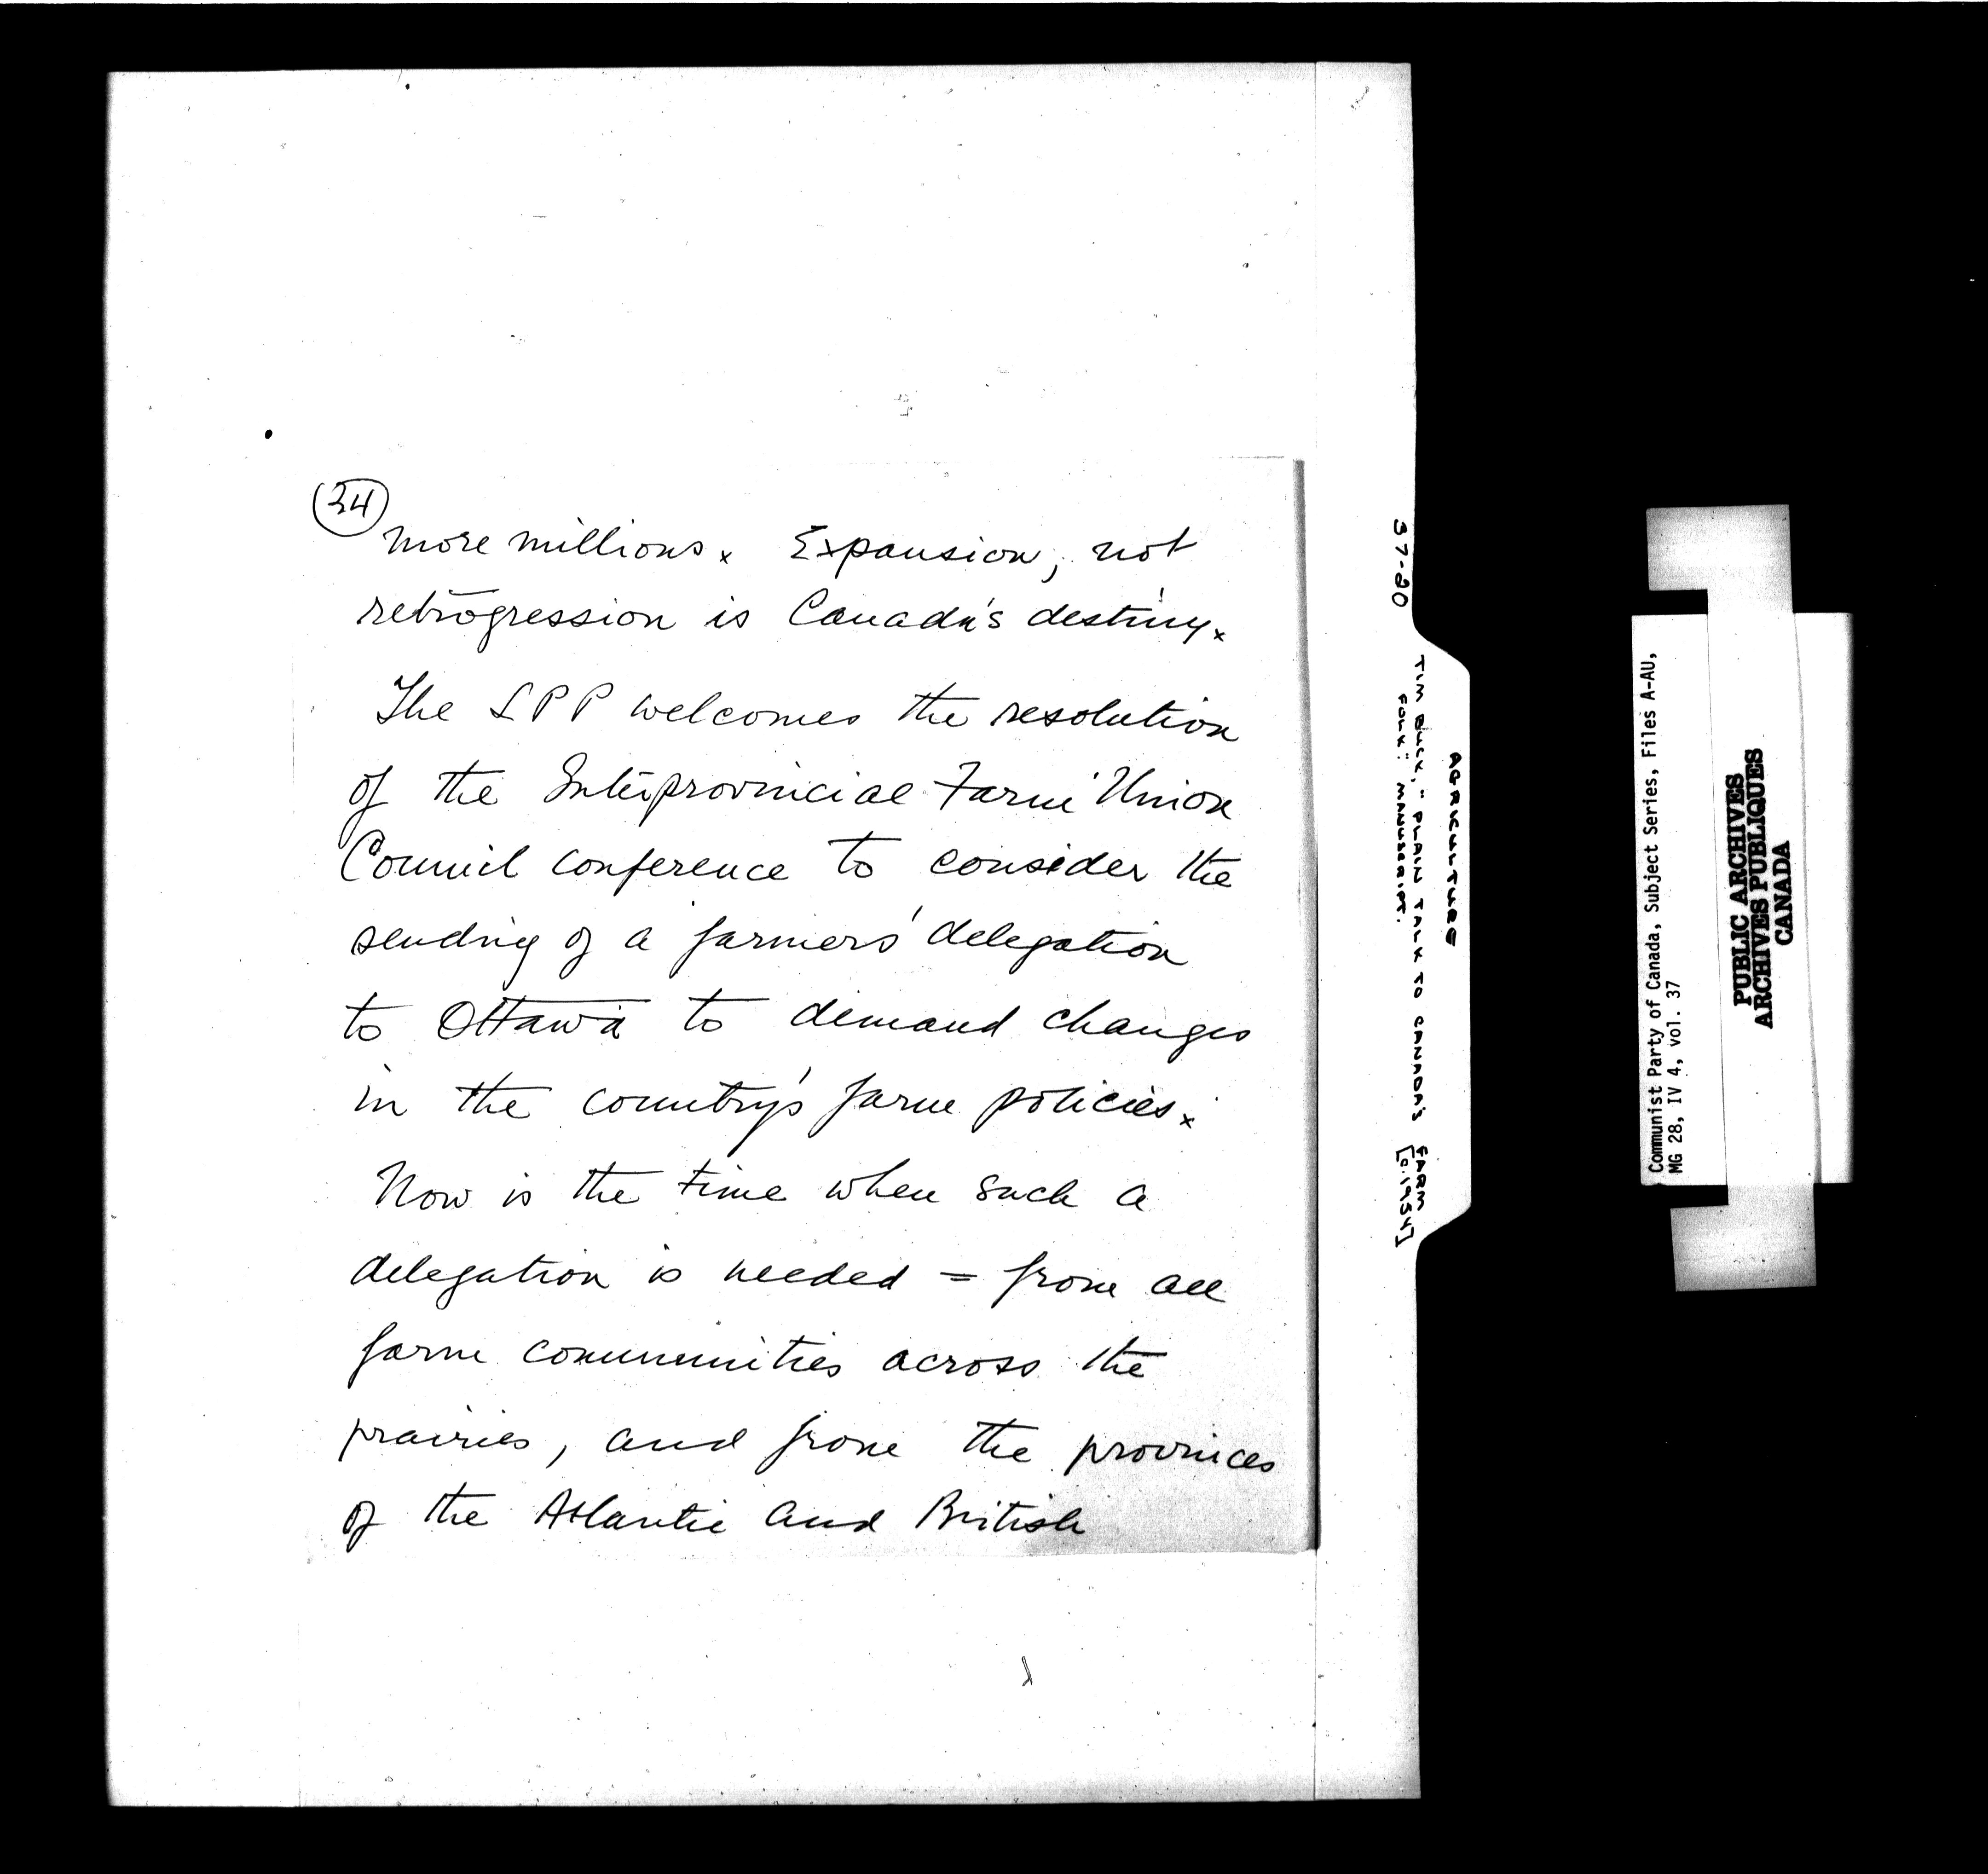 24
more millions. Expansion, not
retrogression is Canada's destiny.
The LPP welcomes the resolution
of the Interprovincial Farm Union
Council conference to consider the
sending of a farmers' delegation
to Ottawa to demand changes
in the country's farm policies.
Now is the time when such a
delegation is needed = from all
farm communities across the
prairies, and from the provinces
of the Atlantic and British
37-20
AGRICULTURE
TIM BUCK, "PLAIN TALK TO CANADA'S FARM
FOLK": MANUSCRIPT. [c.1954]
Communist Party of Canada, Subject Series, Files A-AU,
MG 28, IV 4, vol. 37
PUBLIC ARCHIVES
ARCHIVES PUBLIQUES
CANADA